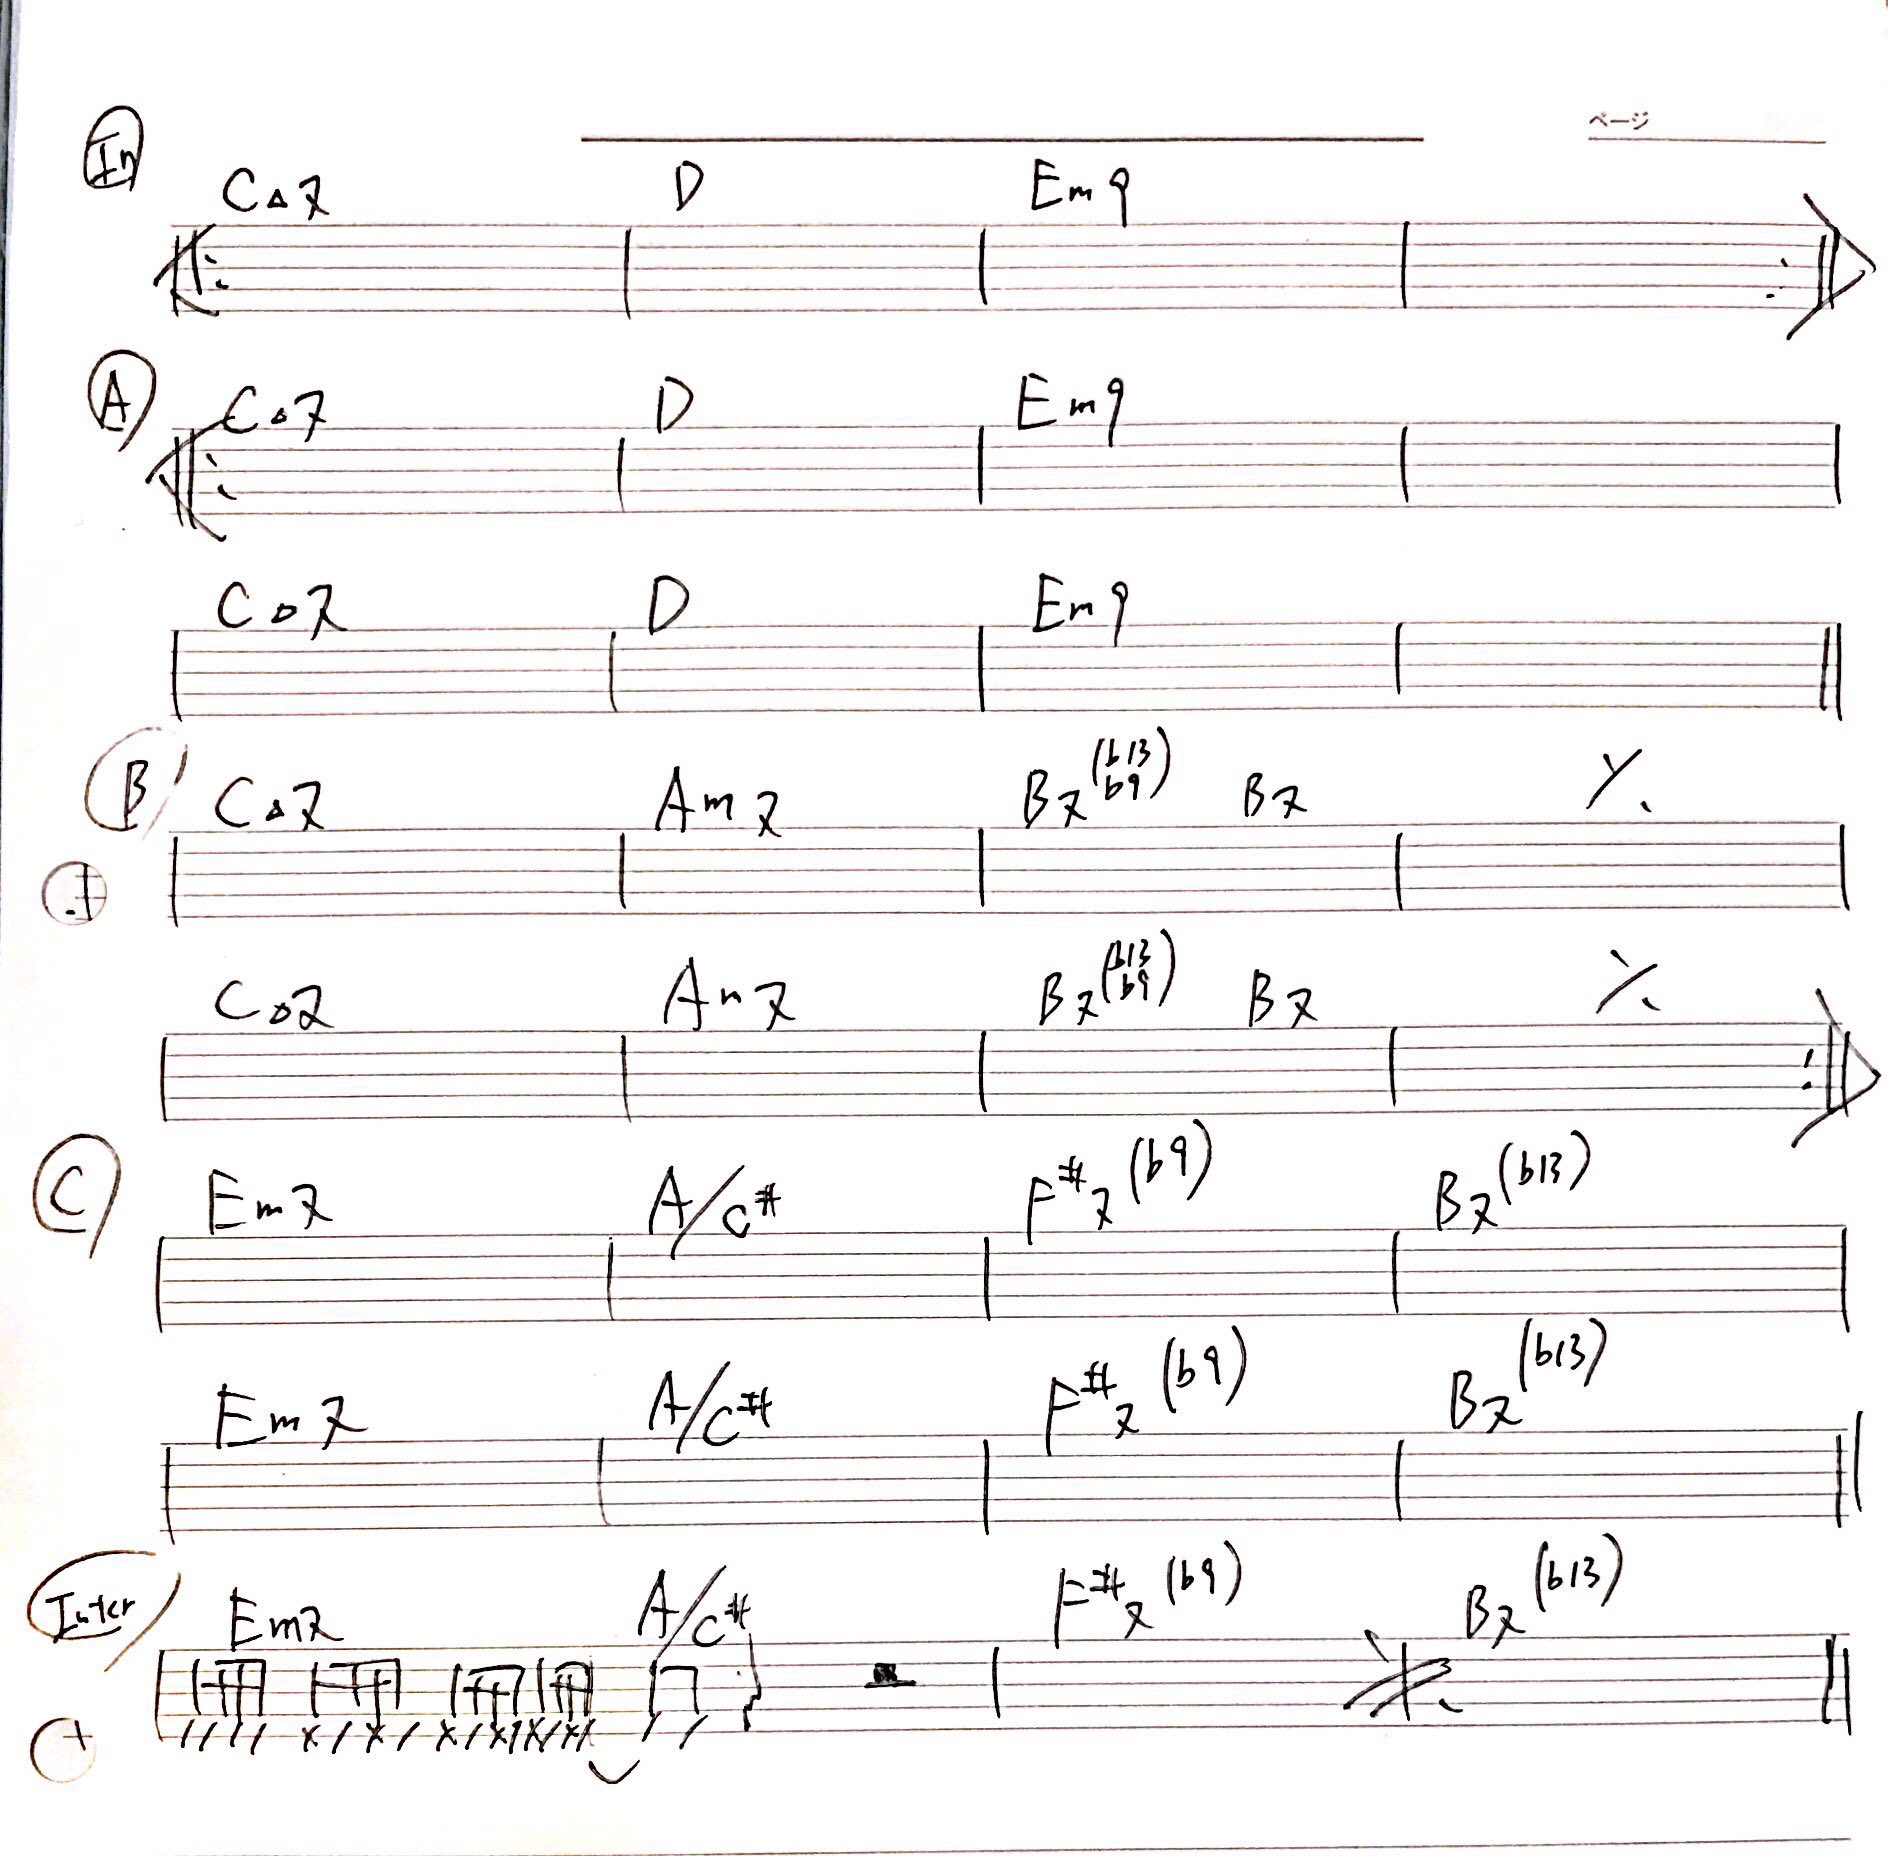 ページ
In
C△7 D Em9
A
C△7 D Em9
C△7 D Em9
B
C△7 Am7 B7(b13 b9) B7 ٪
C△7 Am7 B7(b13 b9) B7 ٪
C
Em7 A/C# F#7(b9) B7(b13)
Em7 A/C# F#7(b9) B7(b13)
Inter
Em7 A/C# F#7(b9) B7(b13)